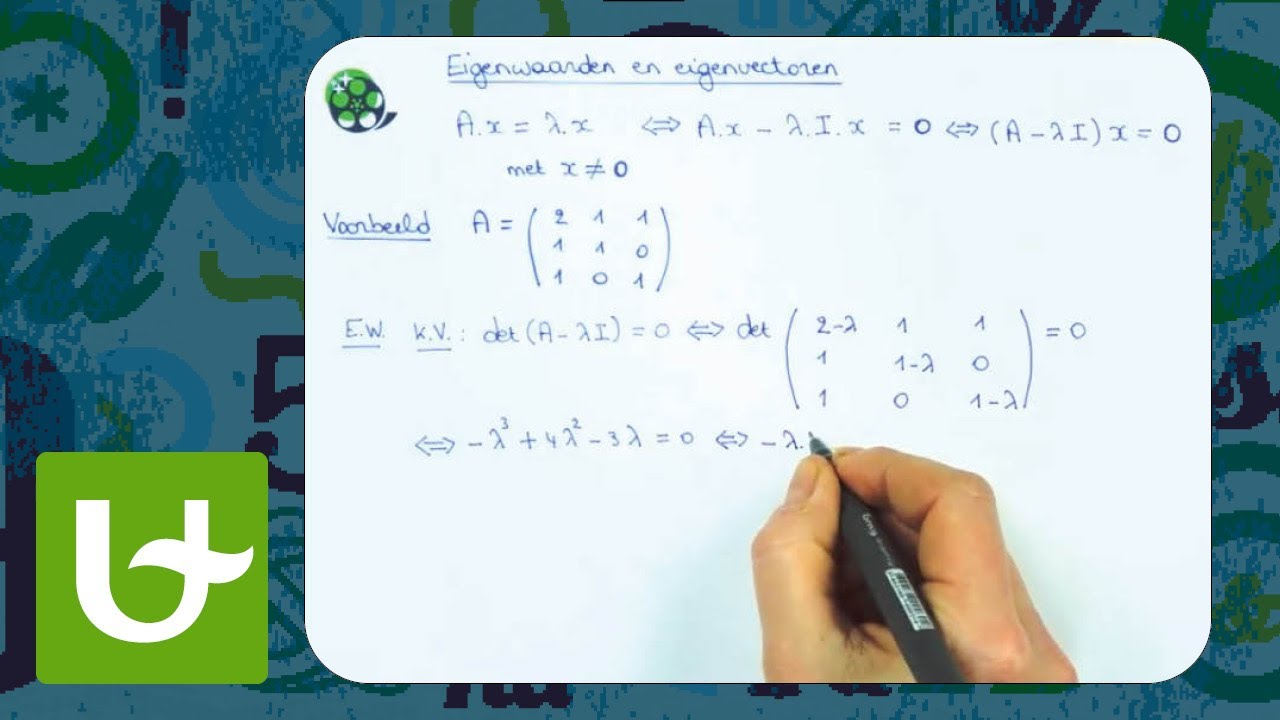 Eigenwaarden en eigenvectoren
A.x = λ.x ⇔ A.x − λ.I.x = 0 ⇔ (A − λI) x = 0
met x ≠ 0
Voorbeeld A = ( 2 1 1
1 1 0
1 0 1 )
E.W. K.V.: det (A − λI) = 0 ⇔ det ( 2−λ 1 1
1 1−λ 0
1 0 1−λ ) = 0
⇔ −λ³ + 4λ² − 3λ = 0 ⇔ −λ.